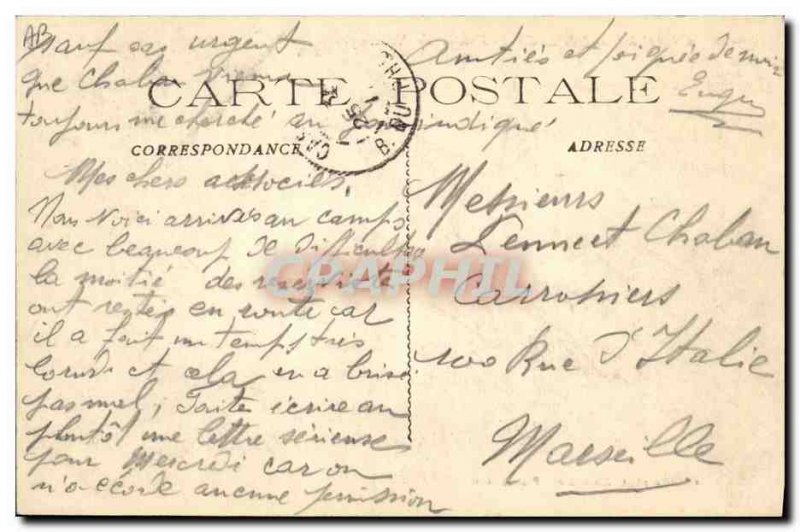 sauf cas urgent
que Chaban vienne
toujours me cherché au jour indiqué
Amitiés et poignée de main
Eugène
CARTE POSTALE
CORRESPONDANCE
ADRESSE
Mes chers associés,
Nous voici arrivés au camps
avec beaucoup de difficultés
la moitié des réservistes
ont restés en route car
il a fait un temps très
lourds et cela en a brisé
pas mal, faite écrire au
plutôt une lettre sérieuse
pour Mercredi car on
n'accorde aucune permission
Messieurs
et Chaban
Carrossiers
100 Rue d'Italie
Marseille
CPAPHIL